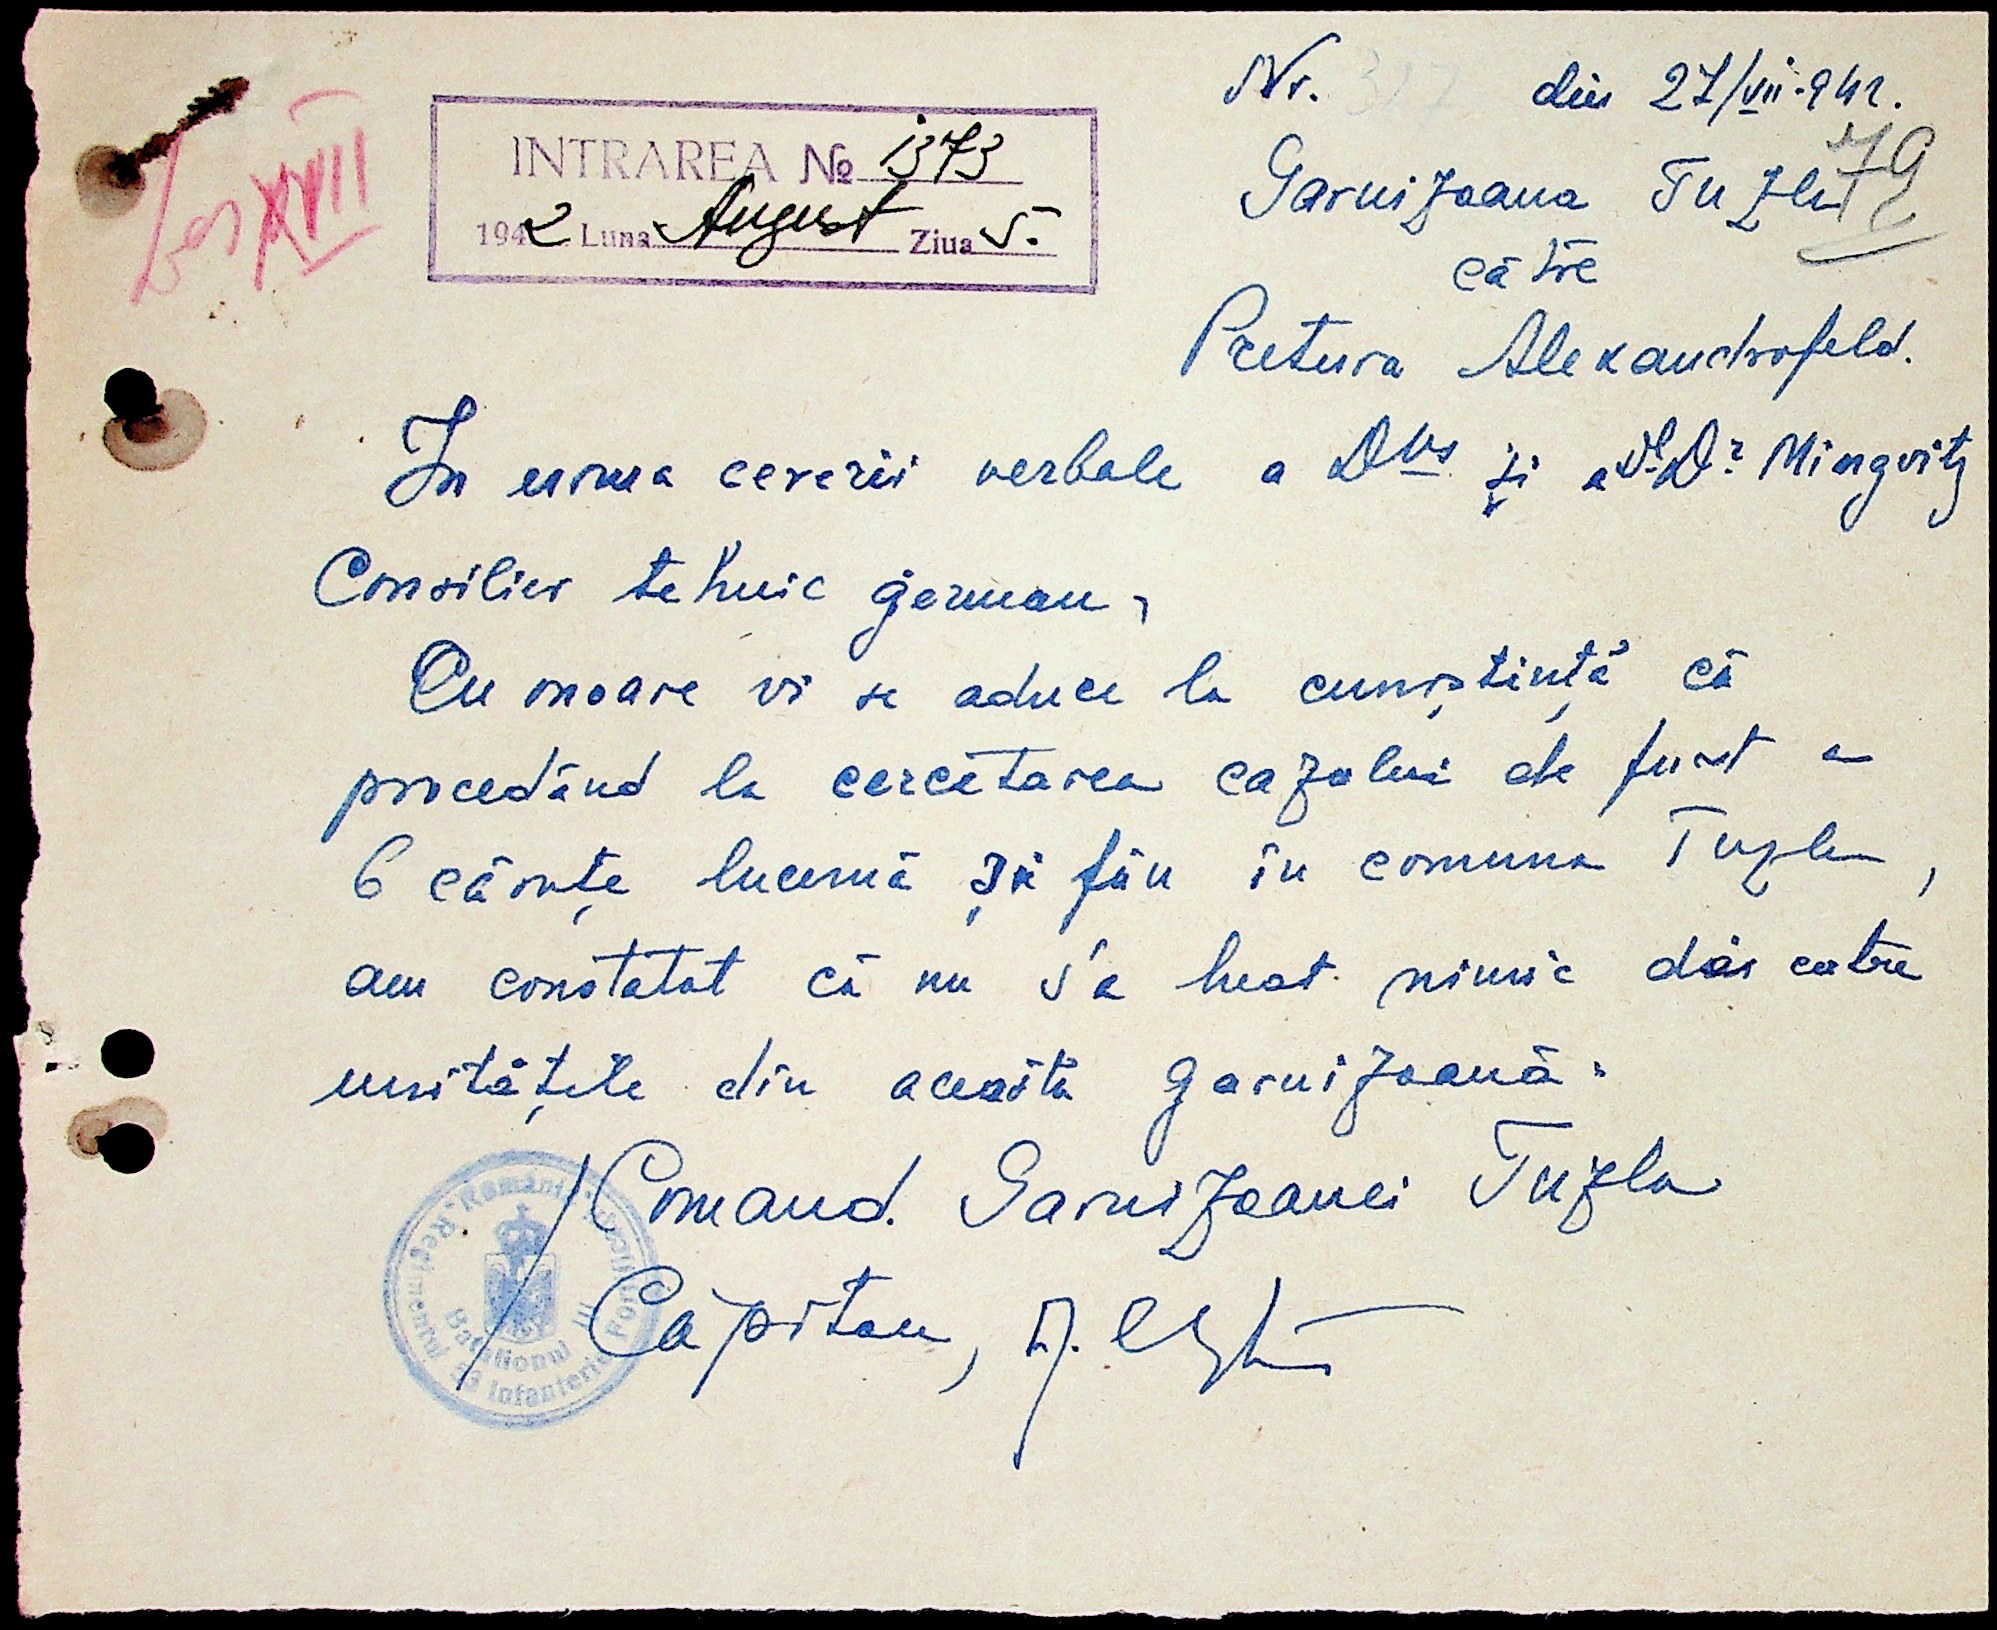 Nr. 317 din 27/VII.942.
79
Garnizoana Tuzla
către
Pretura Alexandrofeld.
INTRAREA № 1373
1942 Luna August Ziua 5.
XVII
In urma cererii verbale a Dvs și a Dl. Dr. Mingvitz
Consilier tehnic german,
Cu onoare vi se aduce la cunoștință că
procedând la cercetarea cazului de furt a
6 căruțe lucernă și fân în comuna Tuzla,
am constatat că nu s'a luat nimic de către
unitățile din această garnizoană.
/ Comand. Garnizoanei Tuzla
Căpitan,
Regimentul 33 Infanterie
Batalionul III